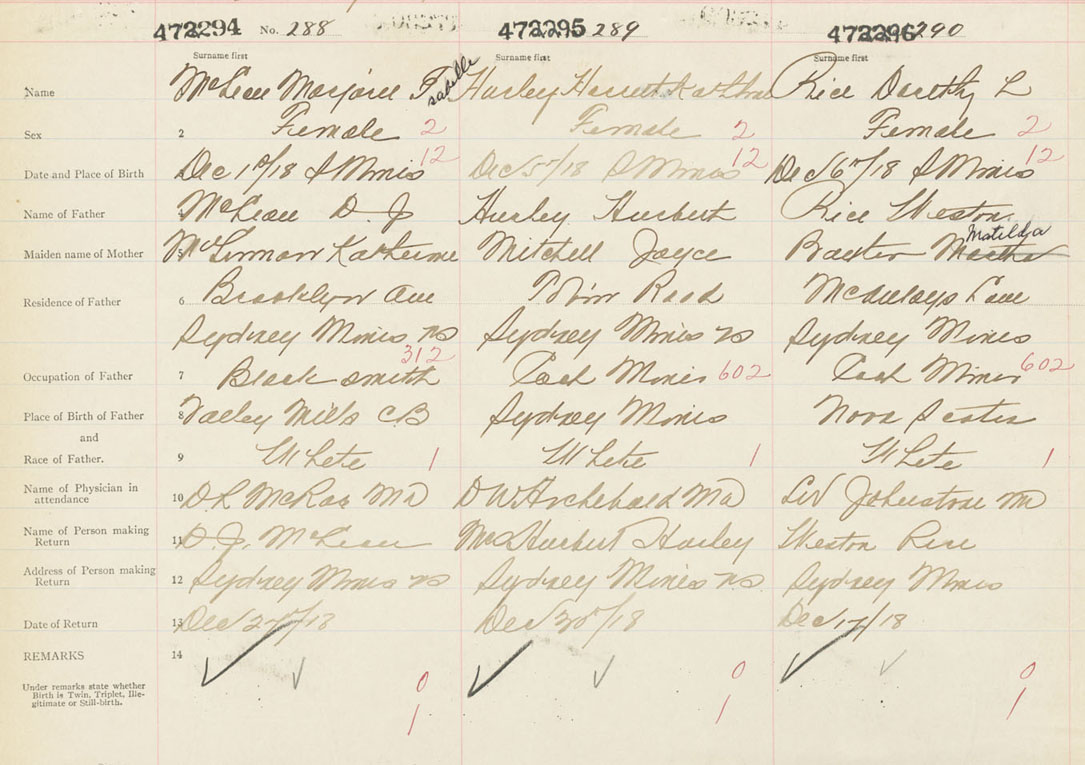 472294 No. 288 472295 289 472296 290
Surname first Surname first Surname first
Name McLean Marjorie Isabelle Hurley Harriett Kathleen Rice Dorothy L
Sex 2 Female 2 Female 2 Female 2
Date and Place of Birth Dec 1st/18 S Mines 12 Dec 5th/18 S Mines 12 Dec 6th/18 S Mines 12
Name of Father 4 McLean D. J Hurley Hurbert Rice Weston
Matilda
Maiden name of Mother 5 Katherine Mitchell Joyce Baxter Martha
Residence of Father 6 Brooklyn Ave Road Lane
Sydney Mines NS Sydney Mines NS Sydney Mines
312
Occupation of Father 7 Blacksmith Coal Miner 602 Coal Miner 602
Place of Birth of Father 8 Valley Mills CB Sydney Mines Nova Scotia
and
Race of Father. 9 White 1 White 1 White 1
Name of Physician in
attendance 10 McRae MD D W Archebald MD Johnstone MD
Name of Person making
Return 11 D. J. McLean Mrs Hurbert Hurley Weston Rice
Address of Person making
Return 12 Sydney Mines NS Sydney Mines NS Sydney Mines
Date of Return 13 Dec /18 Dec 30th/18 Dec 17/18
REMARKS 14
Under remarks state whether 0 0 0
Birth is Twin, Triplet, Ille-
gitimate or Still-birth. 1 1 1